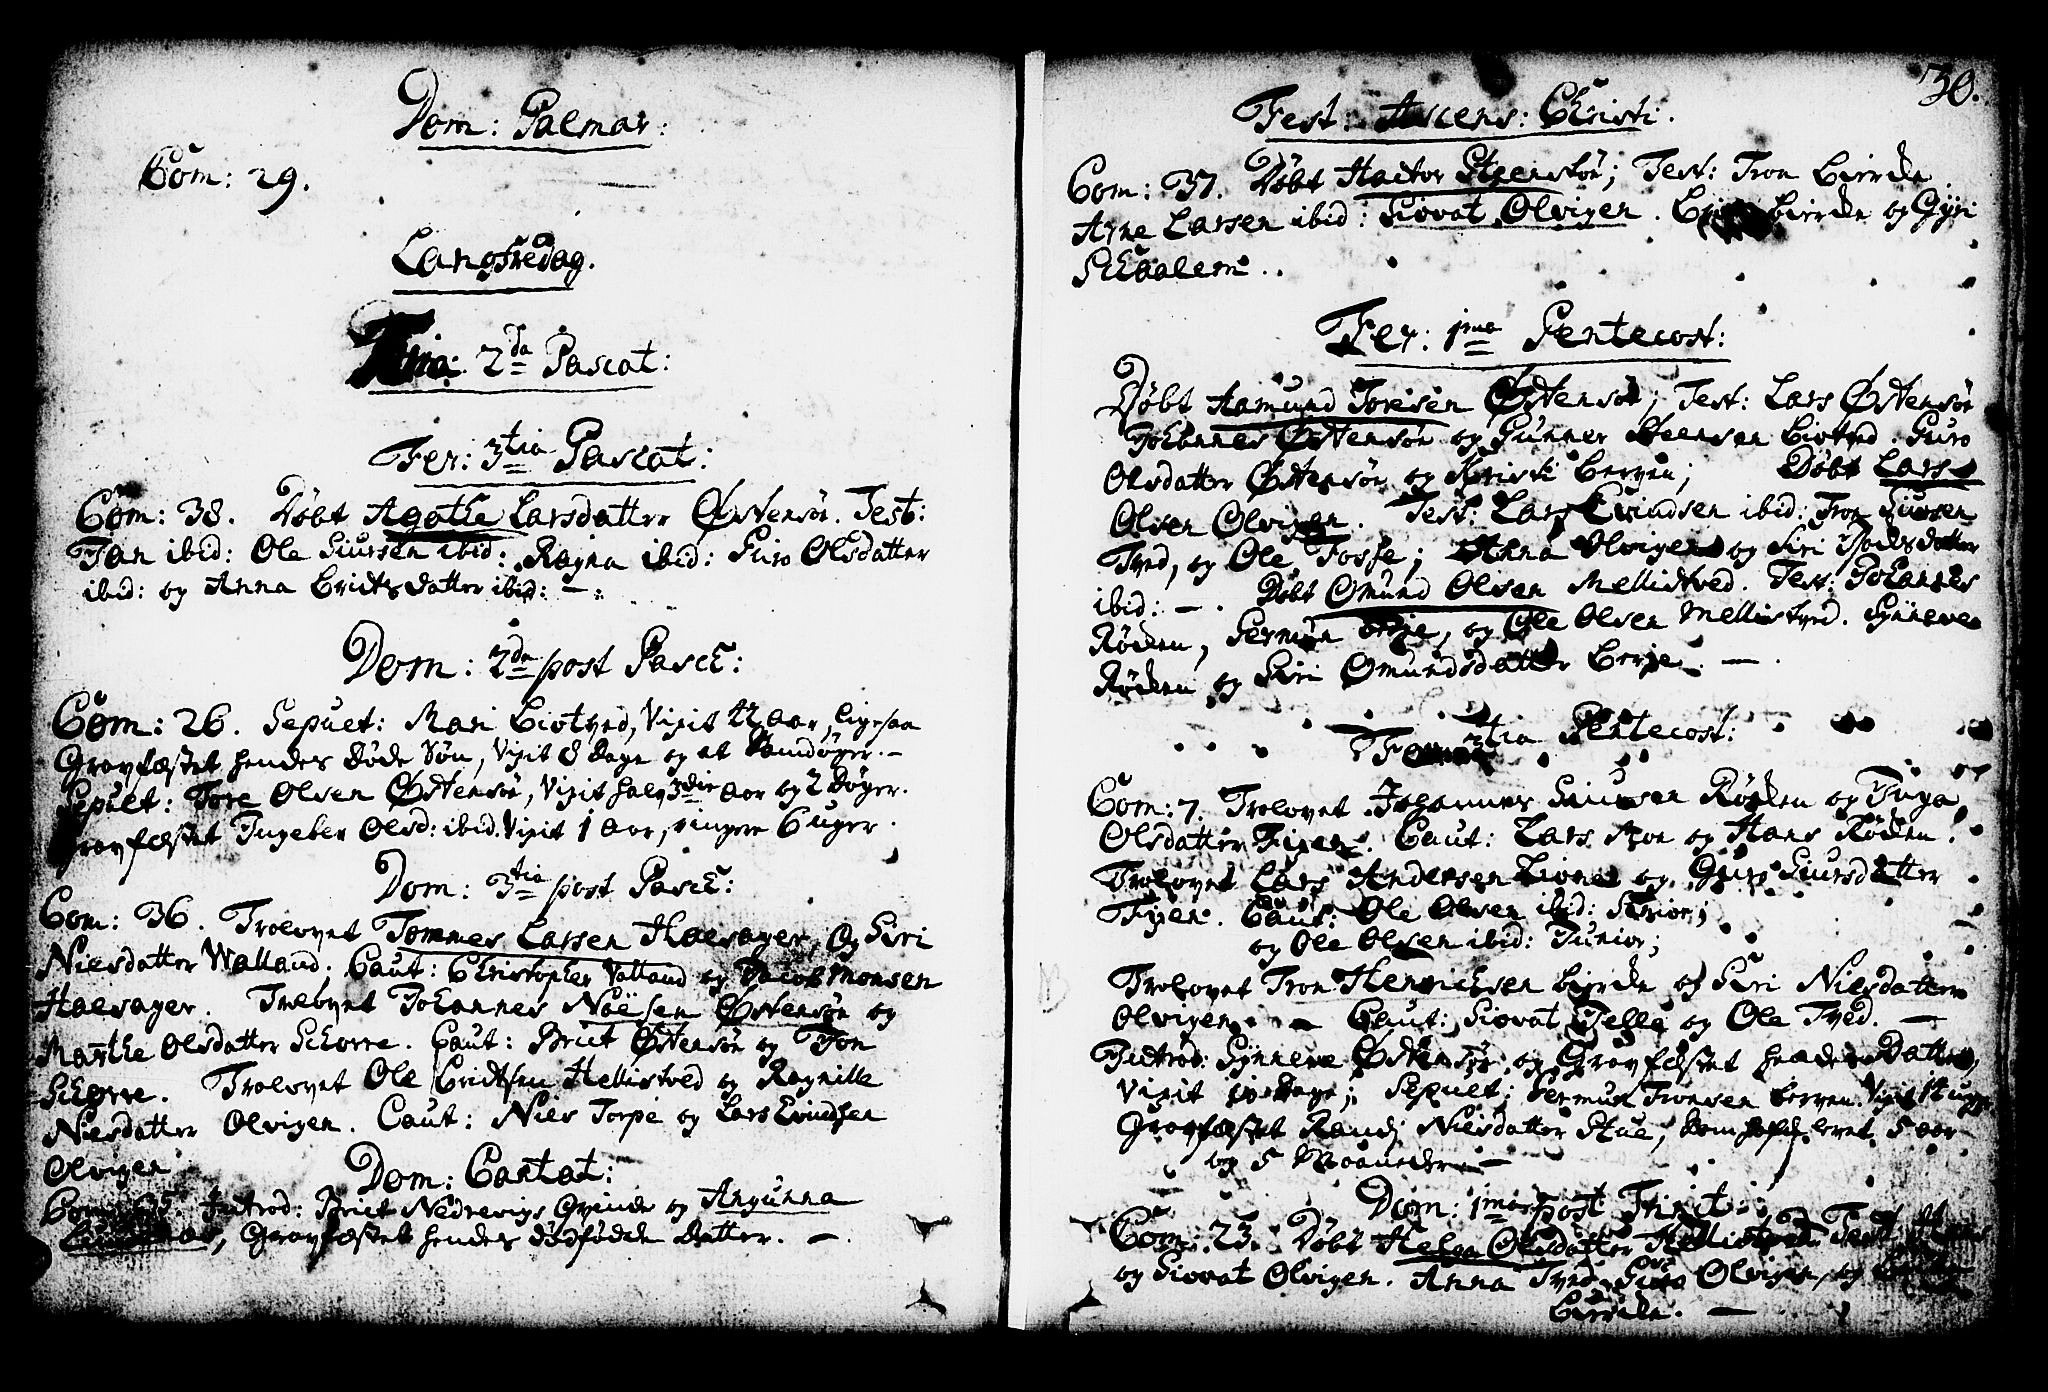 Dom: Palmar:
Com: 29.
Langfredag.
2da Pascat:
Fer: 3tia Pascat:
Com: 38. Døbt Agathe Larsdatter Østensøe. Test:
Jan ibid: Ole Siursen ibid: Ragna ibid: Guro Olsdatter
ibid: og Anna Eridtsdatter ibid: —
Dom: 2da post Pasch:
Com: 26. Sepult: Mari Liotved, Vixit 42 aar, ligesaa
Gravfæstet hendes døde Søn, Vixit 8 dage og et
Sepult: Tore Olsen Østensøe, Vixit halv 3die aar og 2 Døger.
Gravfæstet Ingeber Olsd: ibid. Vixit 1 aar, ringere 6 uger.
Dom: 3tia post Pasch:
Com: 36. Trolovet Tommes Larsen Haesager, og Siri
Nielsdatter Walland. Caut: Christopher Valland og Jacob Monsen
Haesager. Trolovet Johannes Noësen Østensøe og
Marthe Olsdatter Schorre. Caut: Briet Østensøe og Jon
Schorre. Trolovet Ole Eridtsen Mellistved og Ragnille
Nielsdatter Olvigen. Caut: Niels Torpe og Lars Evindsen
Olvigen.
Dom: Cantat:
Introd: Briet Nedrevigs Qvinde og Angunna
Gravfæstet hendes dødfødde Datter. —
30.
Fest: Ascens: Christi.
Com: 37. Døbt Hactor Steenstøe; Test: Tron Birrde
Arne Larsen ibid: Siovat Olvigen. Birrde og Gyri
Schaalem.
Fer. 1ma Pentecost:
Døbt Aamund Toresen Østensøe; Test: Lars Østensøe
Johannes Østensøe og Gunner Steensen Liotved. Guro
Olsdatter Østensøe og Kristi Bergen; Døbt Lars
Olsen Olvigen. Test: Lars Evindsen ibid: Tron Siursen
Tved, og Ole Fosse; Anna Olvigen og Siri
ibid: — . Døbt Omund Olsen Mellistved. Test: Johannes
Røden, Germun Berje, og Ole Olsen Mellistved. Synneve
Røden og Siri Omundsdatter Berje. —
3tia Pentecost:
Com: 7. Trolovet Johannes Siursen Røden og Inga
Olsdatter Fixen. Caut: Lars Moe og Hans Røden.
Trolovet Lars Andersen Lione og Guro Siursdatter
Fixen. Caut: Ole Olsen ibid: Senior;
og Ole Olsen ibid: Junior;
Trolovet Tron Henrichsen Birrde og Siri Nielsdatter
Olvigen. — Caut: Siovat Telle og Ole Tved. —
Introd: Synneve Østensøe og Gravfæstet hendes Datter,
Vixit 10 dage; Sepult: Germun Tronsen Bergen. Vixit 14 uger
Gravfæstet Randi Nielsdatter Stue, som hafde levet 5 aar
og 5 Maaneder. —
Dom: 1ma post Trinit:
Com: 23. Døbt Helga Olsdatter Mellistved. Test:
og Siovat Olvigen. Anna Tved, Guro Olvigen, og
Birrde. —